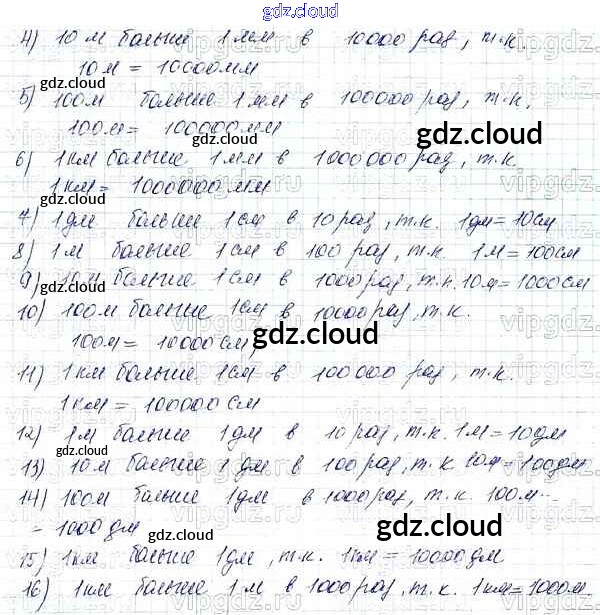 gdz.cloud
4) 10 м больше 1 мм в 10000 раз, т.к.
10 м = 10000 мм
gdz.cloud
5) 100 м больше 1 мм в 100000 раз, т.к.
100 м = 100000 мм
gdz.cloud
6) 1 км больше 1 мм в 1000000 раз, т.к.
gdz.cloud
1 км = 1000000 мм
7) 1 дм больше 1 см в 10 раз, т.к. 1 дм = 10 см
8) 1 м больше 1 см в 100 раз, т.к. 1 м = 100 см
9) 10 м больше 1 см в 1000 раз, т.к. 10 м = 1000 см
gdz.cloud
10) 100 м больше 1 см в 10000 раз, т.к.
100 м = 10000 см
gdz.cloud
11) 1 км больше 1 см в 100000 раз, т.к.
1 км = 100000 см
gdz.cloud
12) 1 м больше 1 дм в 10 раз, т.к. 1 м = 10 дм
13) 10 м больше 1 дм в 100 раз, т.к. 10 м = 100 дм
gdz.cloud
14) 100 м больше 1 дм в 1000 раз, т.к. 100 м
= 1000 дм
gdz.cloud
15) 1 км больше 1 дм, т.к. 1 км = 10000 дм
16) 1 км больше 1 м в 1000 раз, т.к. 1 км = 1000 м.
gdz.cloud